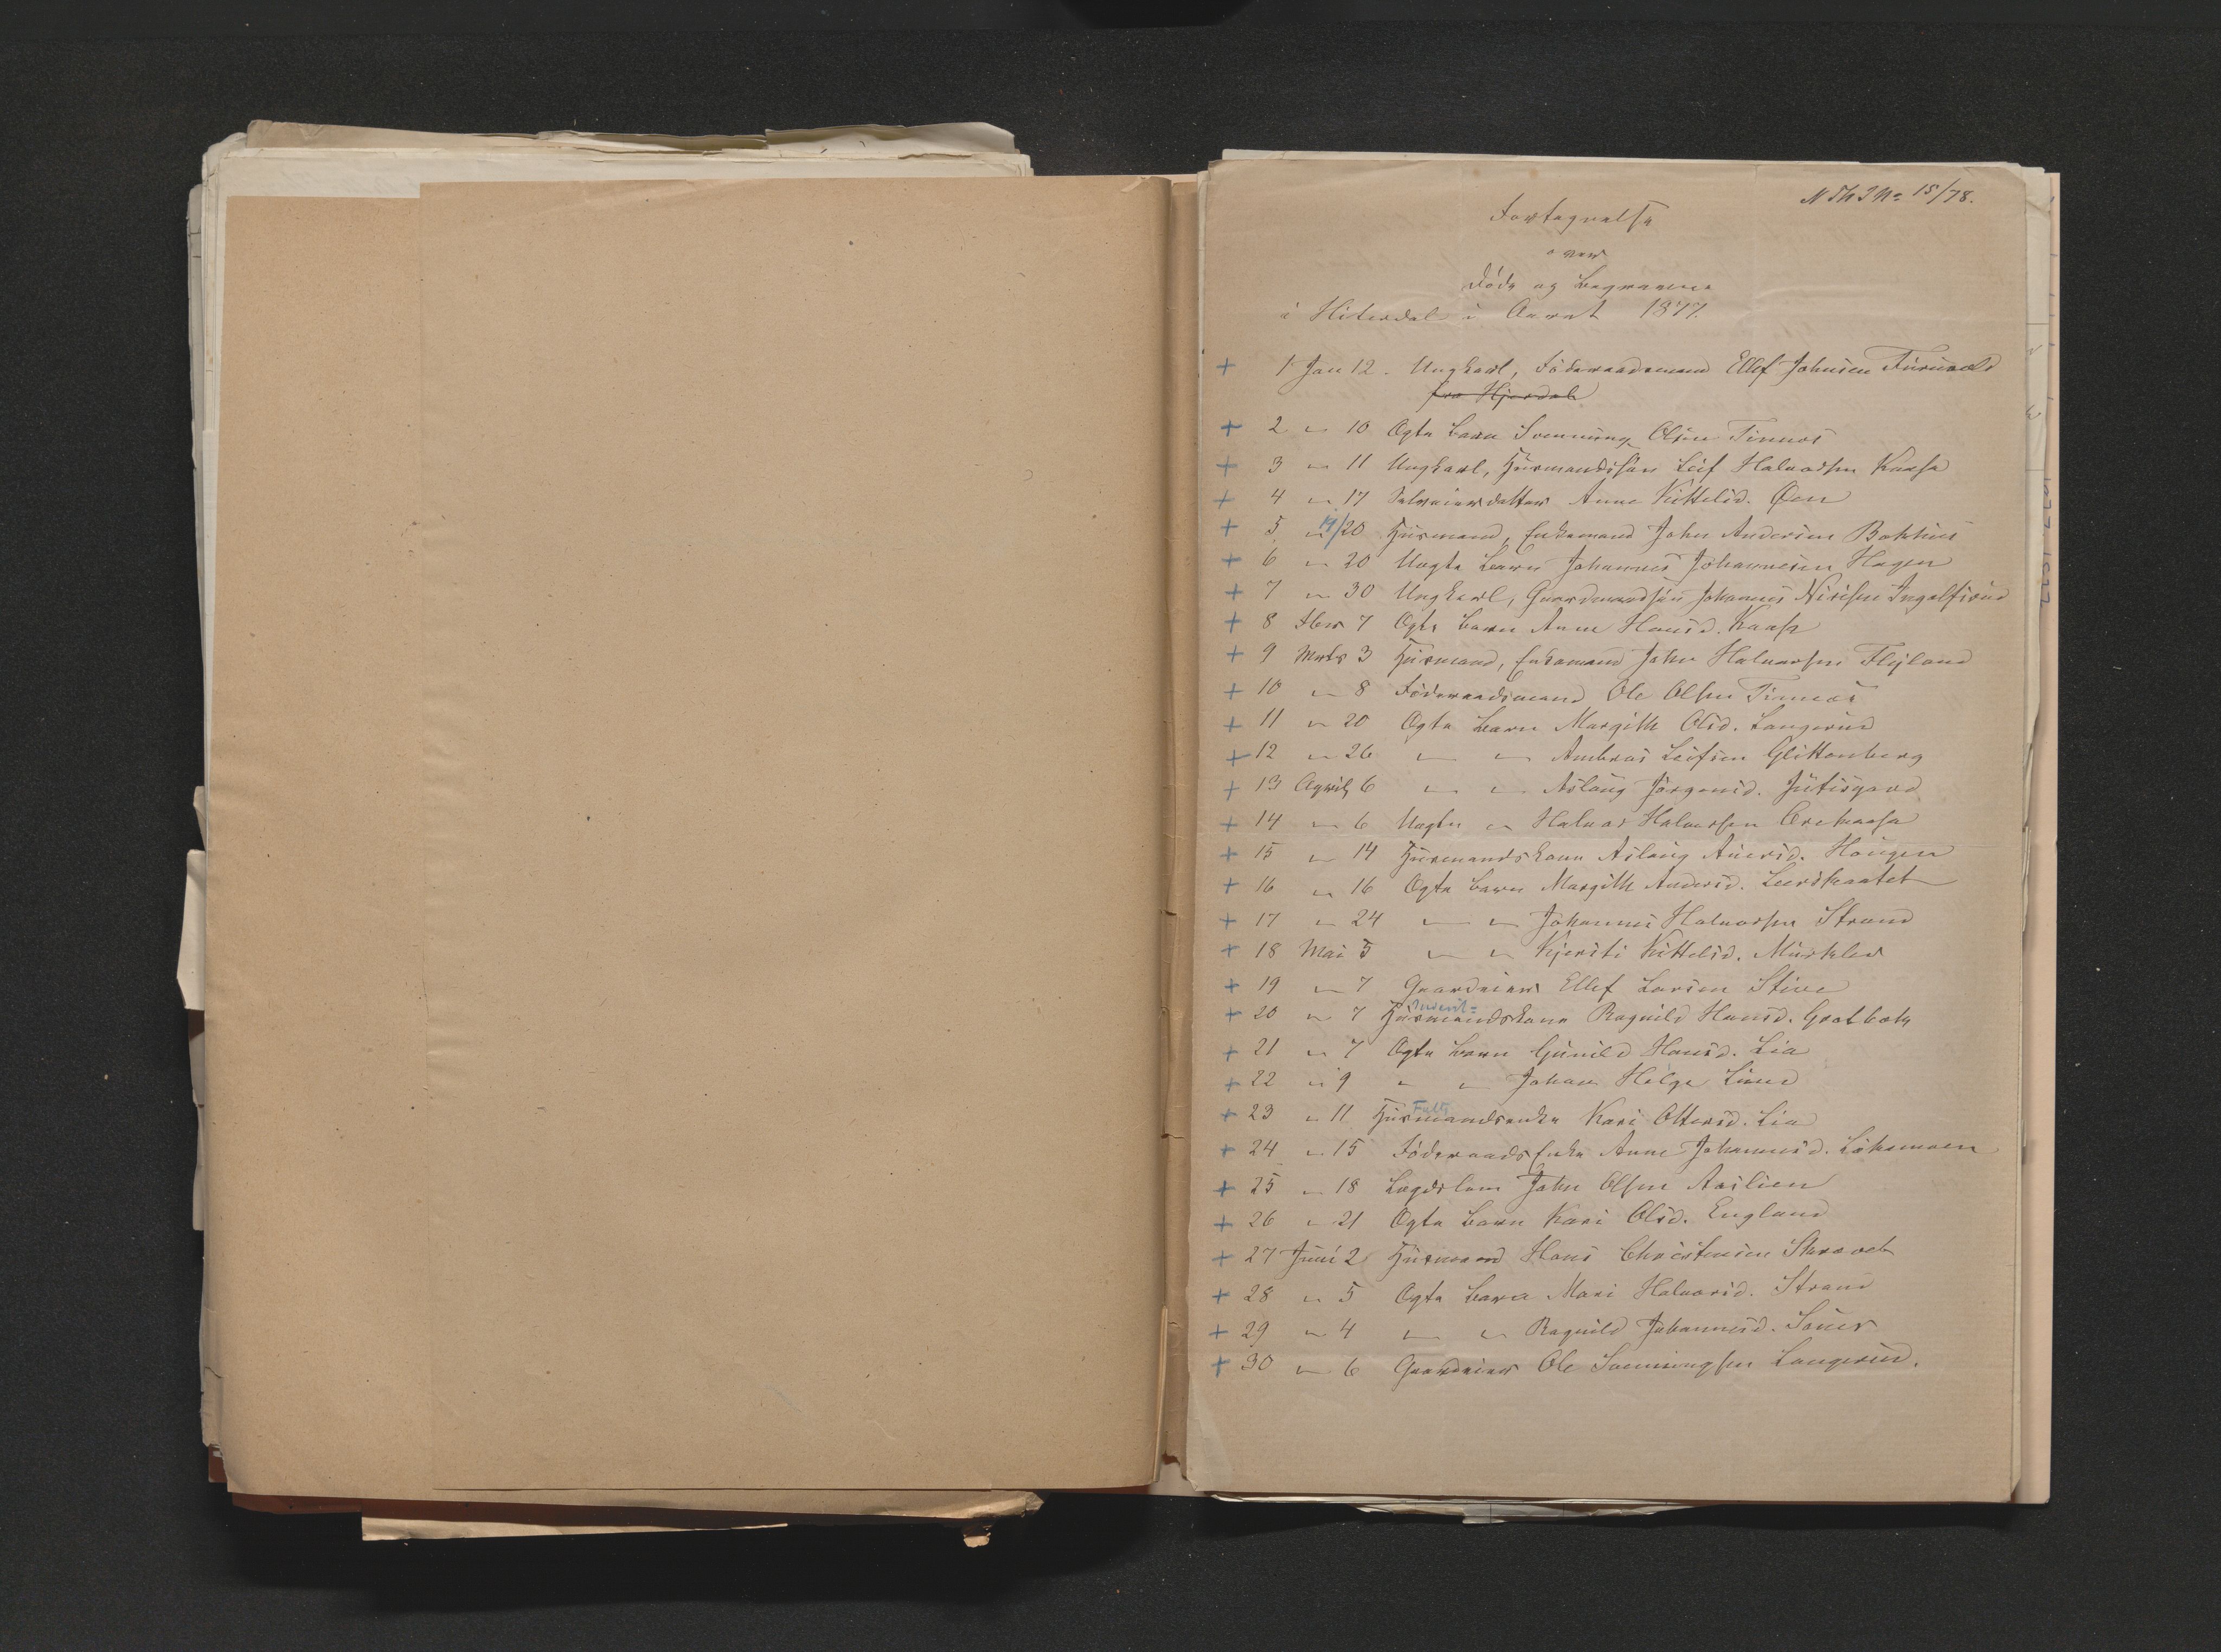 N Th I No 15/78.
Fortegnelse
over
Døde og Begravne
i Hiterdal i Aaret 1877.
+ 1 Jan 12. Ungkarl, Föderaadsmand Ellef Johnsen Furuvold
fra Hjerdal
+ 2 " 10 Ægte Barn Svenning Olsen Tinnes
+ 3 " 11 Ungkarl, Husmandssøn Leif Halvorsen Kaasa
+ 4 " 17 Selveierdatter Anne Kittelsd. Øen
+ 5 " 19/20 Husmand, Enkemand John Andersen Bakhus
+ 6 " 20 Uægte Barn Johannes Johannesen Hagen
+ 7 " 30 Ungkarl, Gaardmandssøn Johannes Nirisen Ingolfsrud
+ 8 Febr 7 Ægte Barn Anne Hansd. Kaasa
+ 9 Marts 3 Husmand, Enkemand John Halvorsen Flyland
+ 10 " 8 Föderaadsmand Ole Olsen Tinnes
+ 11 " 20 Ægte Barn Margith Olsd. Langerud
+ 12 " 26 " " Ambros Leifsen Glittenberg
+ 13 April 6 " " Aslaug Jørgensd. Jutisgaard
+ 14 " 6 Uægte " Halvor Halvorsen Orekaasa
+ 15 " 14 Husmandskone Aslaug Auersd. Haugen
+ 16 " 16 Ægte Barn Margith Andersd. Leerskaatet
+ 17 " 24 " " Johannes Halvorsen Strand
+ 18 Mai 5 " " Kjersti Kittelsd. Murkler
+ 19 " 7 Gaardeier Ellef Larsen Stive
+ 20 " 7 Husmandskone Ragnild Hansd. Grotbæk
+ 21 " 7 Ægte Barn Gunild Hansd. Lia
+ 22 " 9 " " Johan Helge Lund
+ 23 " 11 Husmandsenke Kari Ottersd. Lia
Fatt
+ 24 " 15 FöderaadsEnke Anne Johannesd. Løkamoen
+ 25 " 18 Lægdslem John Olsen Aaslien
+ 26 " 21 Ægte Barn Kari Olsd. England
+ 27 Juni 2 Husmand Hans Christensen
+ 28 " 5 Ægte Barn Mari Halvorsd. Strand
+ 29 " 4 " " Ragnild Johannesd. Sauer
+ 30 " 6 Gaardeier Ole Svenningsen Langerud.